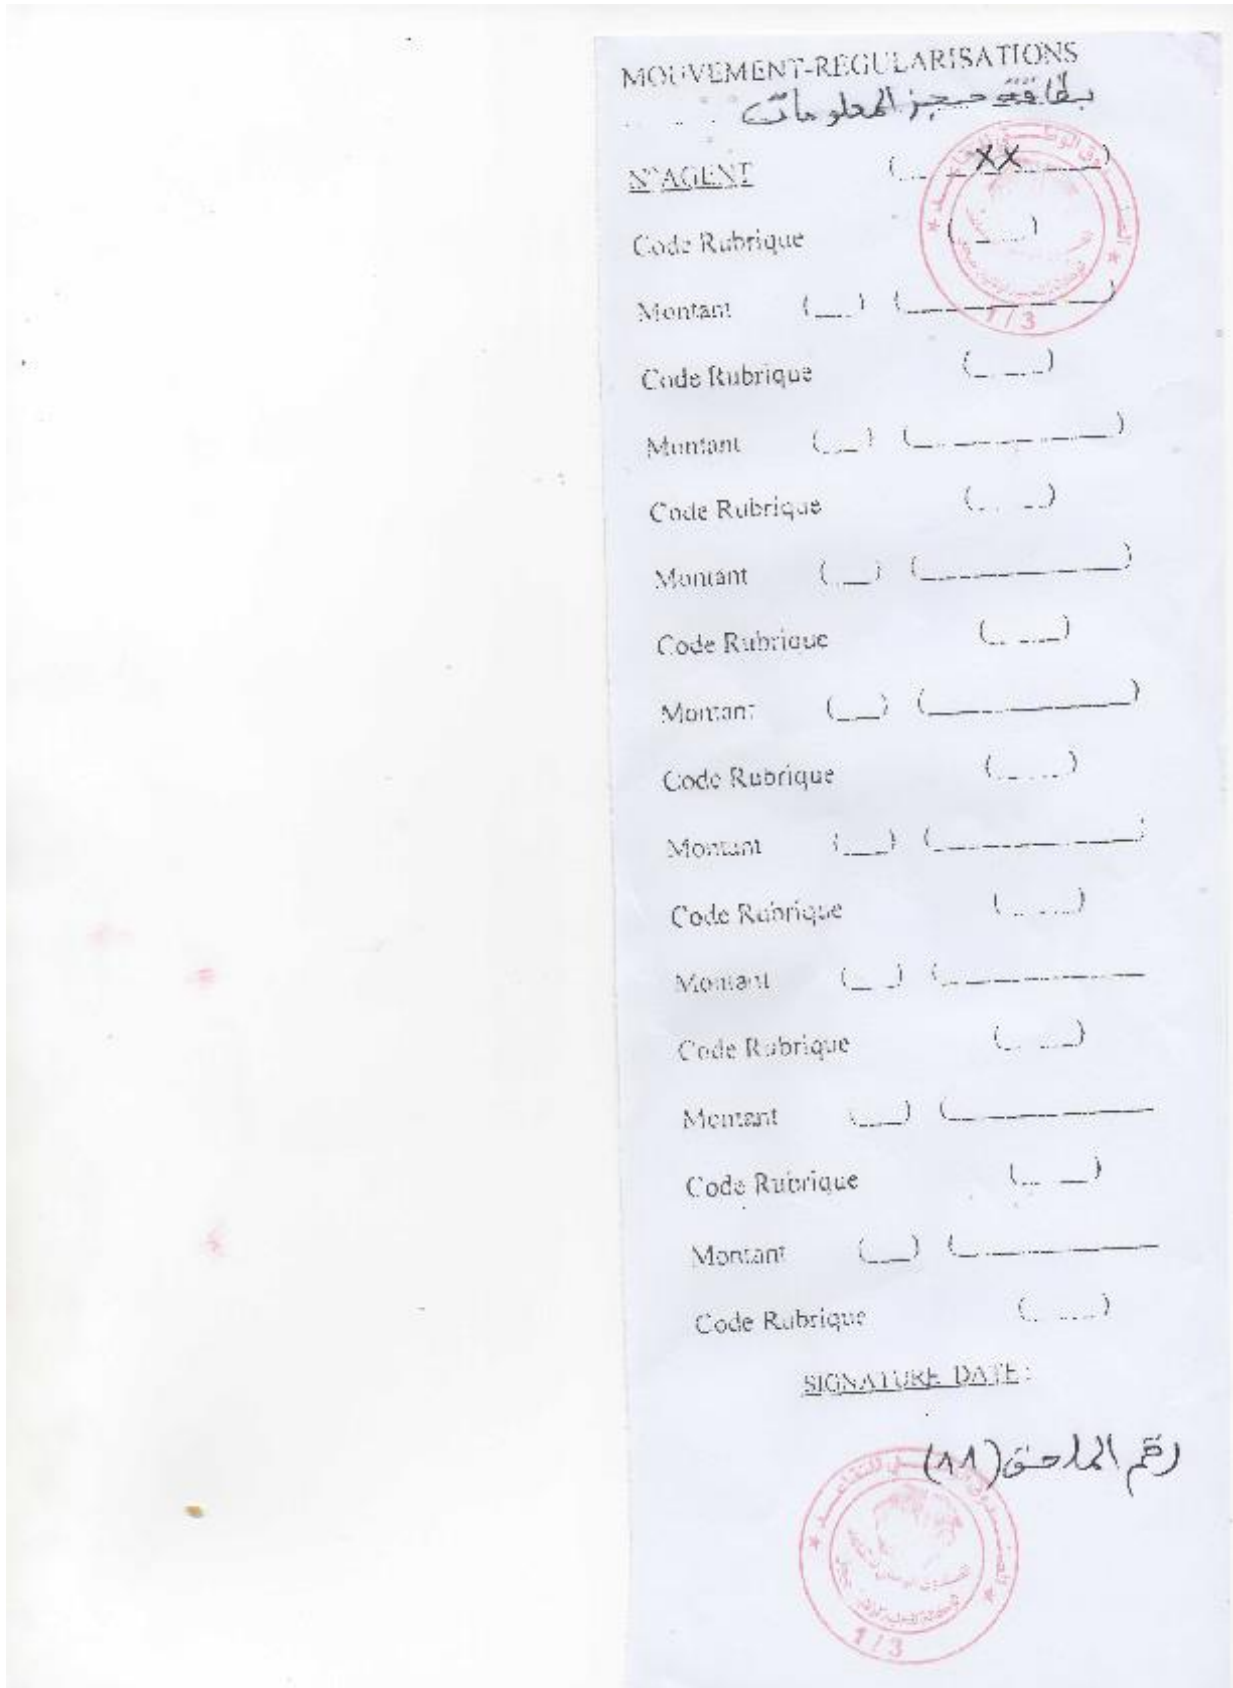 MOUVEMENT-REGULARISATIONS
بطاقة حجز المعلومات
N°AGENT (_ _ XX _ _)
Code Rubrique (_ _)
Montant (__) (__________)
Code Rubrique (_ _)
Montant (__) (__________)
Code Rubrique (_ _)
Montant (__) (__________)
Code Rubrique (_ _)
Montant (__) (__________)
Code Rubrique (_ _)
Montant (__) (__________)
Code Rubrique (_ _)
Montant (__) (__________
Code Rubrique (_ _)
Montant (__) (__________
Code Rubrique (_ _)
Montant (__) (__________
Code Rubrique (_ _)
SIGNATURE DATE :
رقم الملحق (١٨)
1/3
1/3